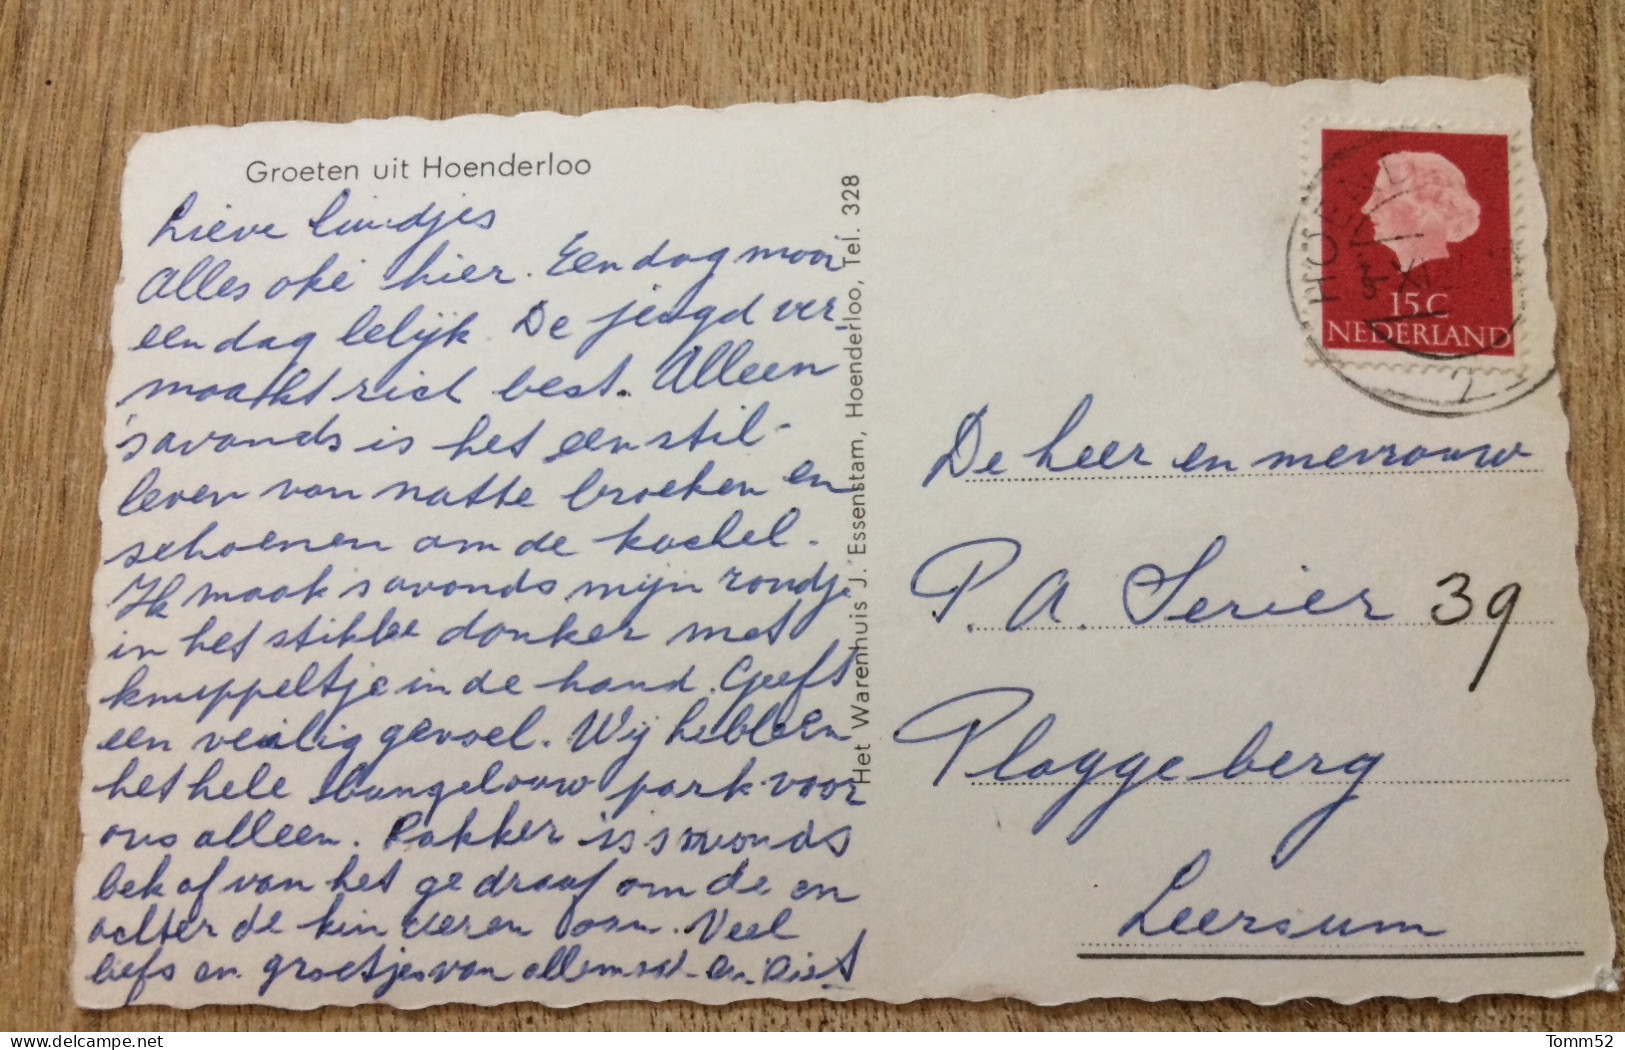 Groeten uit Hoenderloo
Lieve luidjes
Alles oké hier. Een dag mooi
een dag lelijk. De jeugd ver-
maakt zich best. Alleen
's avonds is het een stil-
leven van natte broeken en
schoenen om de kachel.
Ik maak 's avonds mijn rondje
in het stikke donker met
knuppeltje in de hand. Geeft
een veilig gevoel. Wij hebben
het hele bungelouw park voor
ons alleen. Rakker is s avonds
bek af van het gedraaf om de en
achter de kinderen aan. Veel
liefs en groetjes van allemaal
Het Warenhuis J. Essenstam, Hoenderloo, Tel. 328
15 C
NEDERLAND
De heer en mevrouw
P. A. Serier 39
Plaggeberg
Leersum
Tomm52